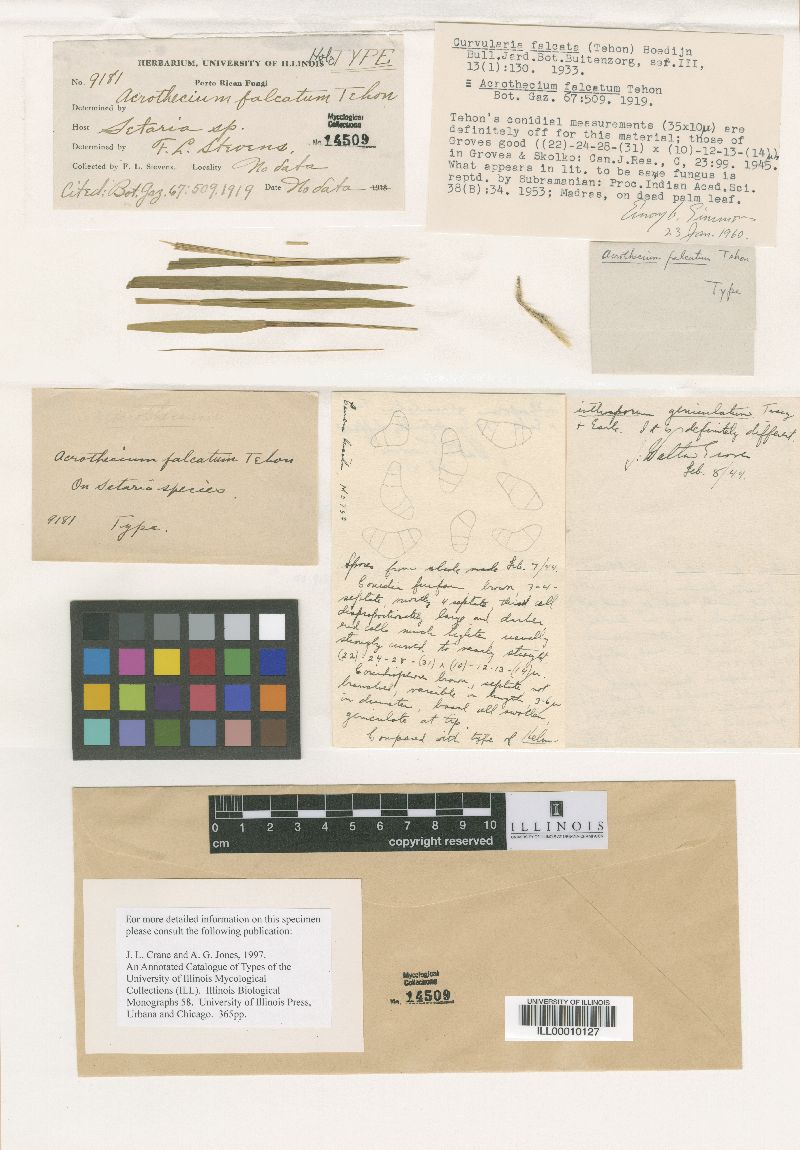 HERBARIUM, UNIVERSITY OF ILLINOIS
Holo TYPE
No. 9181
Porto Rican Fungi
Acrothecium falcatum Tehon
Determined by
Host Setaria sp.
Mycological
Collections
No. 14509
Determined by F. L. Stevens.
Collected by F. L. Stevens. Locality No data
Cited: Bot. Gaz. 67:509. 1919 Date No data 1918
Curvularia falcata (Tehon) Boedijn
Bull.Jard.Bot.Buitenzorg, ser.III,
13(1):130. 1933.
≡ Acrothecium falcatum Tehon
Bot. Gaz. 67:509. 1919.
Tehon's conidial measurements (35x10μ) are
definitely off for this material; those of
Groves good ((22)-24-28-(31) x (10)-12-13-(14)μ,
in Groves & Skolko: Can.J.Res., C, 23:99. 1945.
What appears in lit. to be same fungus is
reptd. by Subramanian: Proc.Indian Acad.Sci.
38(B):34. 1953; Madras, on dead palm leaf.
Emory G. Simmons
23 Jan. 1960.
Acrothecium falcatum Tehon
Type
Acrothecium falcatum Tehon
On Setaria species.
9181 Type.
Camera lucida
Spores from slide made Feb. 7/44.
Conidia fusiform brown 3-4-
septate, mostly 4 septate, third cell
disproportionately large and darker
end cells much lighter, usually
strongly curved to nearly straight
(22)-24-28-(31) x (10)-12-13-(14)μ.
Conidiophores brown, septate, not
branched, variable in length, 3-6μ
in diameter, basal cell swollen,
geniculate at tip.
Compared with type of Helm-
inthosporium geniculatum Tracy
+ Earle. It is definitely different.
J. Walton Groves
Feb. 8/44.
0 1 2 3 4 5 6 7 8 9 10
cm
copyright reserved
I
ILLINOIS
UNIVERSITY OF ILLINOIS AT URBANA-CHAMPAIGN
For more detailed information on this specimen
please consult the following publication:
J. L. Crane and A. G. Jones, 1997.
An Annotated Catalogue of Types of the
University of Illinois Mycological
Collections (ILL). Illinois Biological
Monographs 58. University of Illinois Press,
Urbana and Chicago. 365pp.
Mycological
Collections
No. 14509
UNIVERSITY OF ILLINOIS
ILL00010127